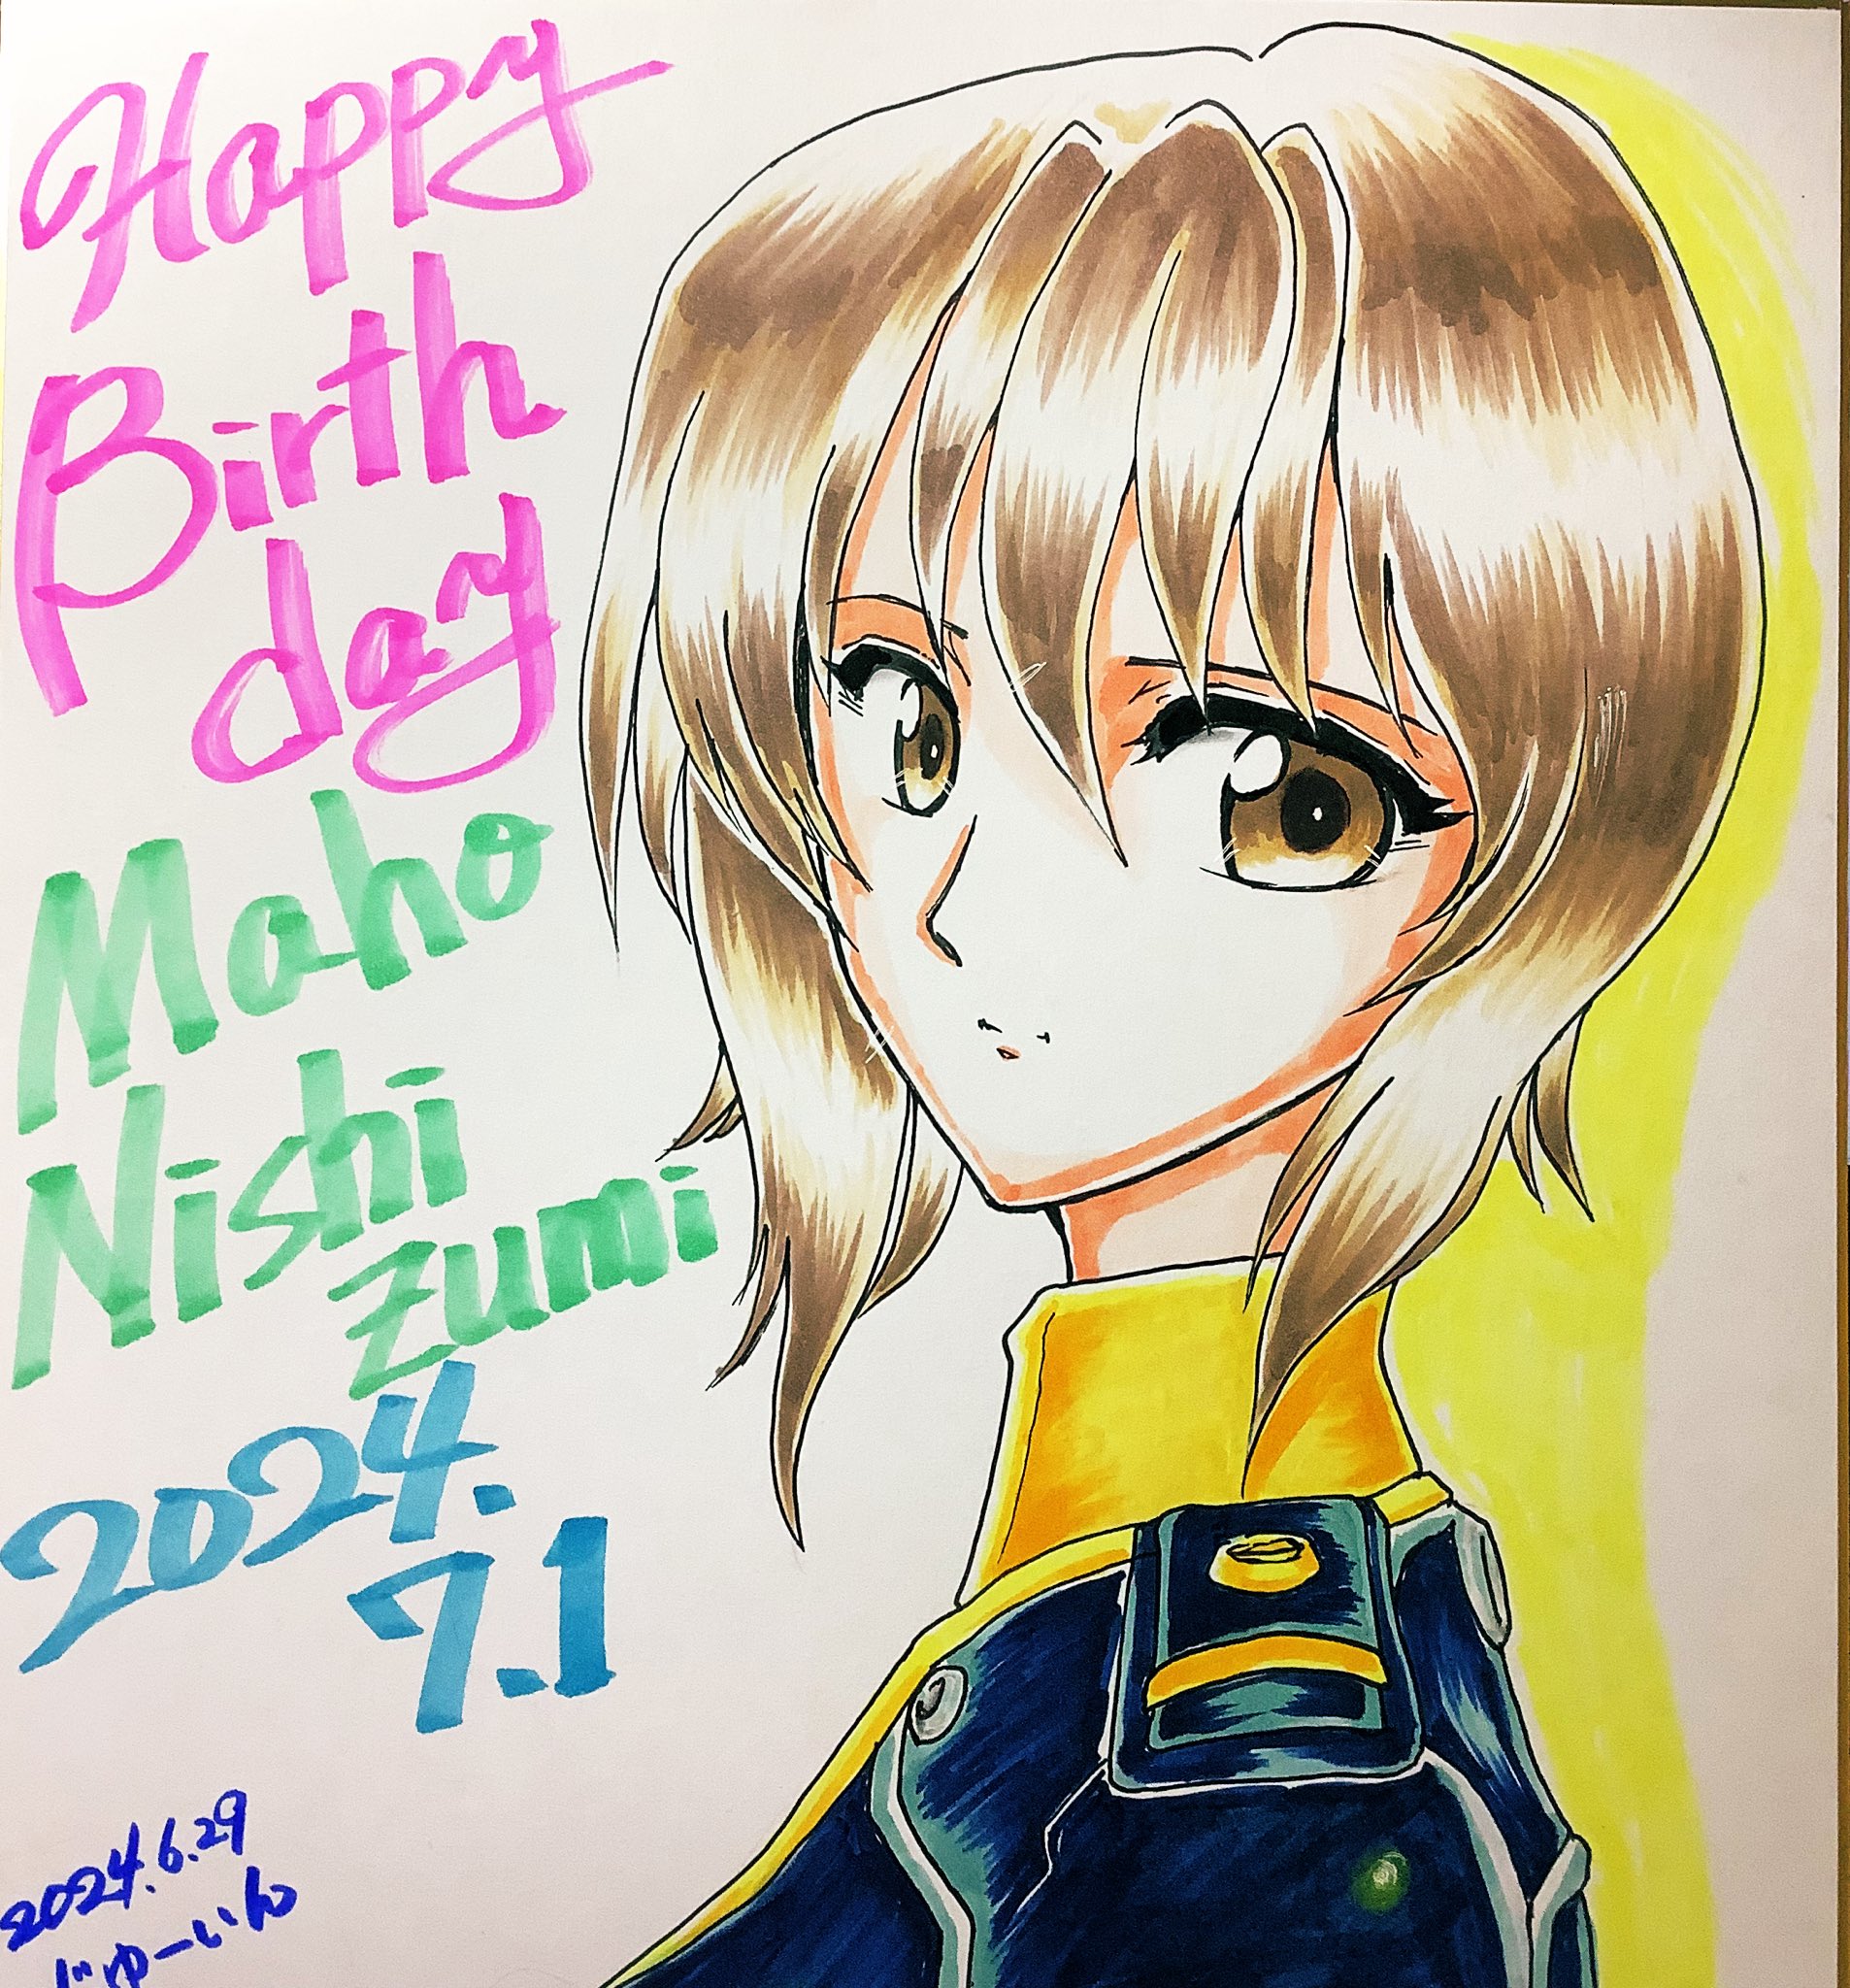 Happy
Birth
day
Maho
Nishi
zumi
2024.
7.1
2024.6.29
じゅーいん